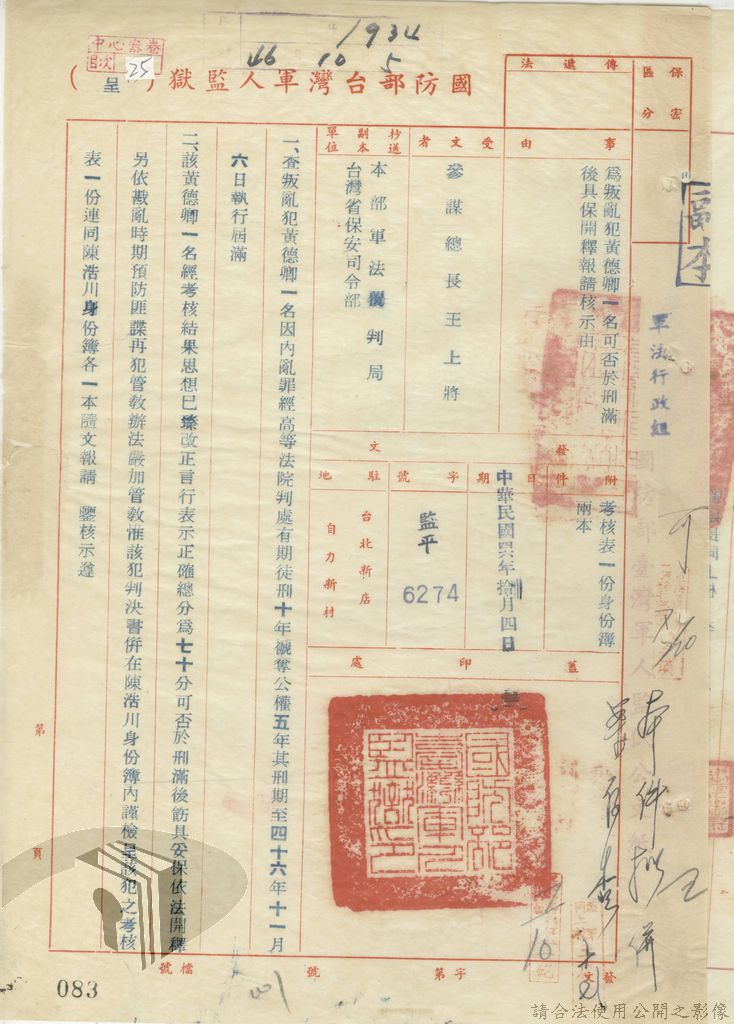 1934
46 10 5
中心案卷
目次 25
國防部台灣軍人監獄(呈)
保密區分
傳遞法
事由
為叛亂犯黃德卿一名可否於刑滿
後具保開釋報請核示由
受文者
參謀總長王上將
抄送副本單位
本部軍法覆判局
台灣省保安司令部
附件
考核表一份身份簿
兩本
發文
日期
中華民國四六年拾月四日
字號
監平
6274
駐地
台北新店
自力新村
蓋印處
國防部臺灣軍人監獄印
一、查叛亂犯黃德卿一名因內亂罪經高等法院判處有期徒刑十年褫奪公權五年其刑期至四十六年十一月
六日執行屆滿
二、該黃德卿一名經考核結果思想已臻改正言行表示正確總分為七十分可否於刑滿後飭具妥保依法開釋
另依戡亂時期預防匪諜再犯管教辦法嚴加管教惟該犯判決書併在陳浩川身份簿內謹檢呈該犯之考核
表一份連同陳浩川身份簿各一本隨文報請 鑒核示遵
軍法行政組
可
本件擬併
第 頁
檔號
字第 號
發文
083
請合法使用公開之影像